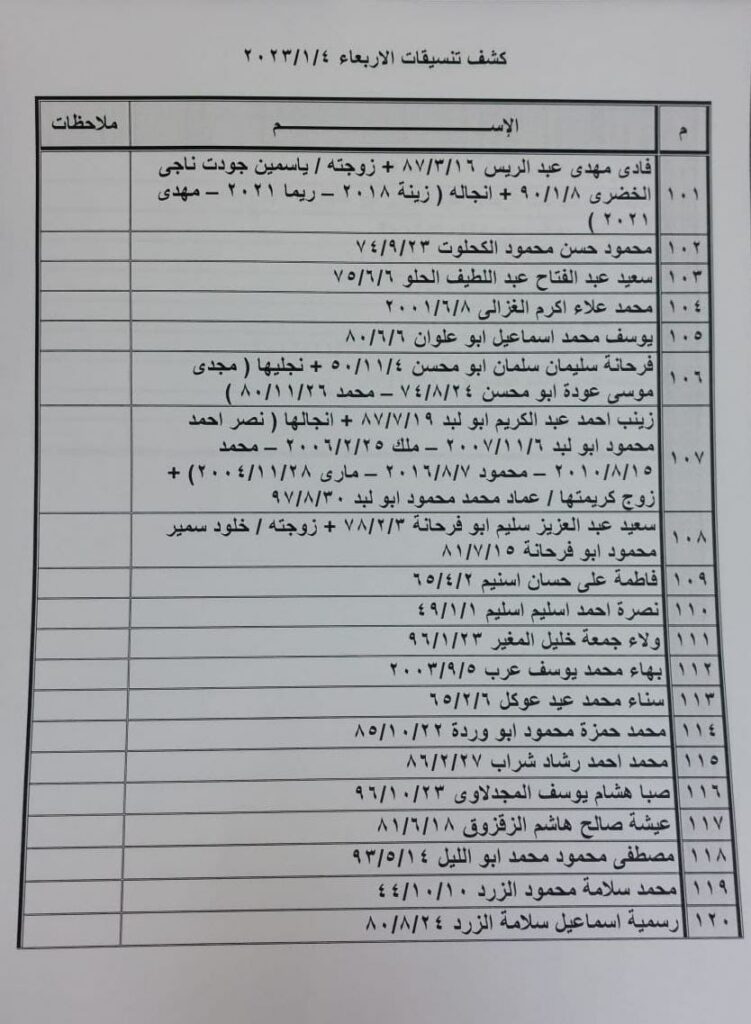 كشف تنسيقات الاربعاء ٢٠٢٣/١/٤
م الإســـــــــــــــم ملاحظات
١٠١ فادى مهدى عبد الريس ٨٧/٣/١٦ + زوجته / ياسمين جودت ناجى
الخضرى ٩٠/١/٨ + انجاله ( زينة ٢٠١٨ – ريما ٢٠٢١ – مهدى
٢٠٢١ )
١٠٢ محمود حسن محمود الكحلوت ٧٤/٩/٢٣
١٠٣ سعيد عبد الفتاح عبد اللطيف الحلو ٧٥/٦/٦
١٠٤ محمد علاء اكرم الغزالى ٢٠٠١/٦/٨
١٠٥ يوسف محمد اسماعيل ابو علوان ٨٠/٦/٦
١٠٦ فرحانة سليمان سلمان ابو محسن ٥٠/١١/٤ + نجليها ( مجدى
موسى عودة ابو محسن ٧٤/٨/٢٤ – محمد ٨٠/١١/٢٦ )
١٠٧ زينب احمد عبد الكريم ابو لبد ٨٧/٧/١٩ + انجالها ( نصر احمد
محمود ابو لبد ٢٠٠٧/١١/٦ – ملك ٢٠٠٦/٢/٢٥ – محمد
٢٠١٠/٨/١٥ – محمود ٢٠١٦/٨/٧ – مارى ٢٠٠٤/١١/٢٨) +
زوج كريمتها / عماد محمد محمود ابو لبد ٩٧/٨/٣٠
١٠٨ سعيد عبد العزيز سليم ابو فرحانة ٧٨/٢/٣ + زوجته / خلود سمير
محمود ابو فرحانة ٨١/٧/١٥
١٠٩ فاطمة على حسان اسنيم ٦٥/٤/٢
١١٠ نصرة احمد اسليم اسليم ٤٩/١/١
١١١ ولاء جمعة خليل المغير ٩٦/١/٢٣
١١٢ بهاء محمد يوسف عرب ٢٠٠٣/٩/٥
١١٣ سناء محمد عيد عوكل ٦٥/٢/٦
١١٤ محمد حمزة محمود ابو وردة ٨٥/١٠/٢٢
١١٥ محمد احمد رشاد شراب ٨٦/٢/٢٧
١١٦ صبا هشام يوسف المجدلاوى ٩٦/١٠/٢٣
١١٧ عيشة صالح هاشم الزقزوق ٨١/٦/١٨
١١٨ مصطفى محمود محمد ابو الليل ٩٣/٥/١٤
١١٩ محمد سلامة محمود الزرد ٤٤/١٠/١٠
١٢٠ رسمية اسماعيل سلامة الزرد ٨٠/٨/٢٤